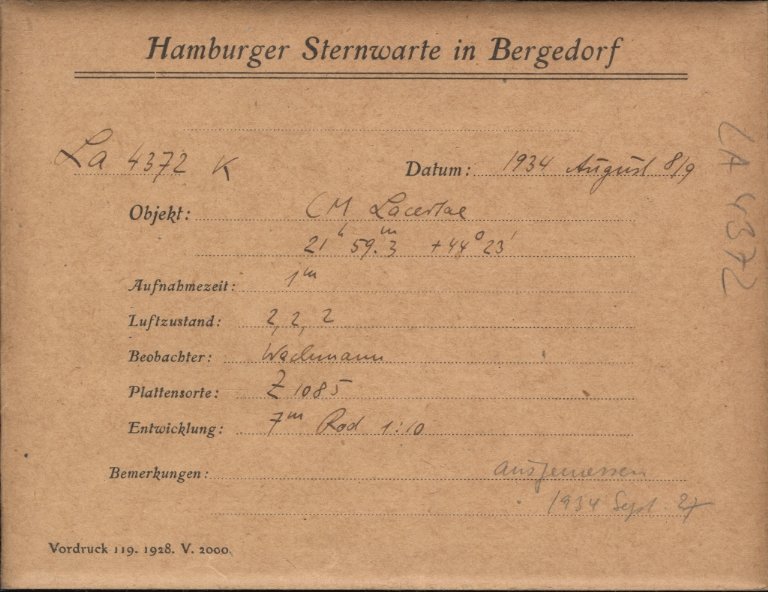 Hamburger Sternwarte in Bergedorf
La 4372 K
Datum: 1934 August 8/9
Objekt: CM Lacertae
21ʰ 59.ᵐ3 +44° 23'
Aufnahmezeit: 1ᵐ
Luftzustand: 2, 2, 2
Beobachter: Wachmann
Plattensorte: Z 1085
Entwicklung: 7ᵐ Rod 1:10
Bemerkungen: ausgemessen
1934 Sept. 27
Vordruck 119. 1928. V. 2000.
LA 4372